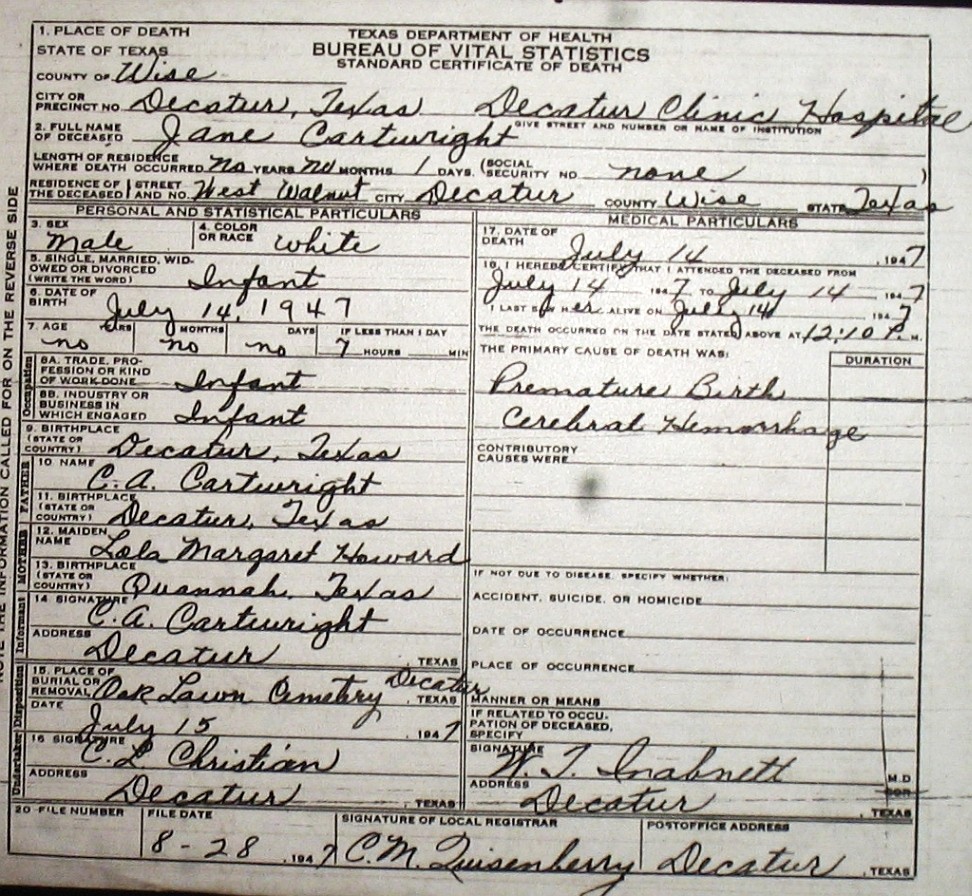 1. PLACE OF DEATH
STATE OF TEXAS
COUNTY OF Wise
TEXAS DEPARTMENT OF HEALTH
BUREAU OF VITAL STATISTICS
STANDARD CERTIFICATE OF DEATH
CITY OR PRECINCT NO. Decatur, Texas Decatur Clinic Hospital
GIVE STREET AND NUMBER OR NAME OF INSTITUTION
2. FULL NAME OF DECEASED Jane Cartwright
LENGTH OF RESIDENCE WHERE DEATH OCCURRED no YEARS no MONTHS 1 DAYS. (SOCIAL SECURITY NO none )
RESIDENCE OF THE DECEASED STREET AND NO. West Walnut CITY Decatur COUNTY Wise STATE Texas
PERSONAL AND STATISTICAL PARTICULARS
3. SEX Male
4. COLOR OR RACE white
5. SINGLE, MARRIED, WIDOWED OR DIVORCED (WRITE THE WORD) Infant
6. DATE OF BIRTH July 14, 1947
7. AGE YEARS MONTHS DAYS IF LESS THAN 1 DAY
no no no 7 HOURS MIN
Occupation
8A. TRADE, PROFESSION OR KIND OF WORK DONE Infant
8B. INDUSTRY OR BUSINESS IN WHICH ENGAGED Infant
9. BIRTHPLACE (STATE OR COUNTRY) Decatur, Texas
FATHER
10 NAME C.A. Cartwright
11. BIRTHPLACE (STATE OR COUNTRY) Decatur, Texas
MOTHER
12. MAIDEN NAME Lola Margaret Howard
13. BIRTHPLACE (STATE OR COUNTRY) Quannah, Texas
Informant
14 SIGNATURE C.A. Cartwright
ADDRESS Decatur, TEXAS
Disposition
15. PLACE OF BURIAL OR REMOVAL Oak Lawn Cemetery Decatur, TEXAS
DATE July 15, 1947
Undertaker
16 SIGNATURE C. L. Christian
ADDRESS Decatur, TEXAS
MEDICAL PARTICULARS
17. DATE OF DEATH July 14, 1947
18. I HEREBY CERTIFY THAT I ATTENDED THE DECEASED FROM
July 14 1947 TO July 14, 1947
I LAST SAW her ALIVE ON July 14 1947
THE DEATH OCCURRED ON THE DATE STATED ABOVE AT 12:10 P. M.
THE PRIMARY CAUSE OF DEATH WAS: DURATION
Premature Birth
Cerebral Hemorrhage
CONTRIBUTORY CAUSES WERE
IF NOT DUE TO DISEASE, SPECIFY WHETHER:
ACCIDENT, SUICIDE, OR HOMICIDE
DATE OF OCCURRENCE
PLACE OF OCCURRENCE
MANNER OR MEANS
IF RELATED TO OCCUPATION OF DECEASED, SPECIFY
SIGNATURE W. T. Inabnett M.D
ADDRESS Decatur, TEXAS
20 FILE NUMBER
FILE DATE 8-28, 1947
SIGNATURE OF LOCAL REGISTRAR C.M. Quisenberry
POSTOFFICE ADDRESS Decatur, TEXAS
THE INFORMATION CALLED FOR ON THE REVERSE SIDE